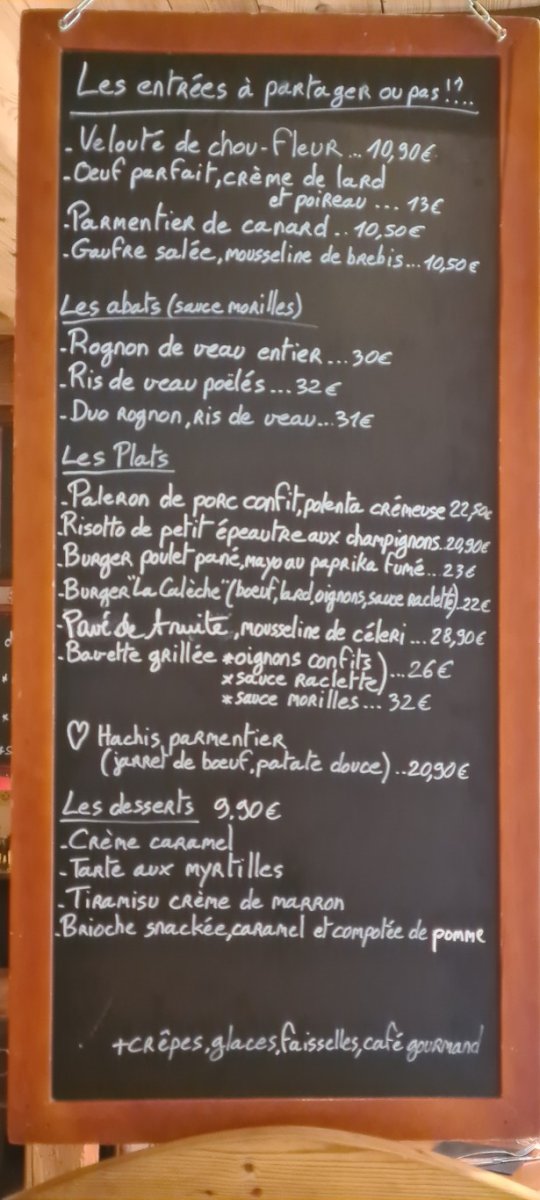 Les entrées à partager ou pas!?...
- Velouté de chou-fleur... 10,90€
- Oeuf parfait, crème de lard
et poireau ... 13€
- Parmentier de canard .. 10,50€
- Gaufre salée, mousseline de brebis... 10,50€
Les abats (sauce morilles)
- Rognon de veau entier... 30€
- Ris de veau poëlés... 32€
- Duo rognon, ris de veau... 31€
Les Plats
- Paleron de porc confit, polenta crémeuse 22,50€
- Risotto de petit épeautre aux champignons.. 20,90€
- Burger poulet pané, mayo au paprika fumé.. 23€
- Burger "La Calèche" (boeuf, lard, oignons, sauce raclette).. 22€
- Pavé de truite, mousseline de céleri ... 28,90€
- Bavette grillée *oignons confits
*sauce raclette) ...26€
*sauce morilles... 32€
♡ Hachis parmentier
(jarret de boeuf, patate douce) ..20,90€
Les desserts 9,90€
- Crème caramel
- Tarte aux myrtilles
- Tiramisu crème de marron
- Brioche snackée, caramel et compotée de pomme
+ crêpes, glaces, faisselles, café gourmand